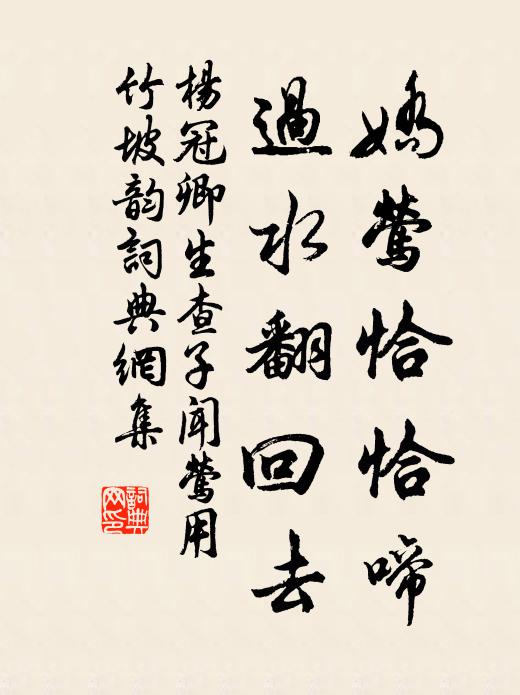 嬌鶯恰恰啼
過水翻回去
楊冠卿生查子聞鶯用
竹坡韵詞典網集
詞典
网印